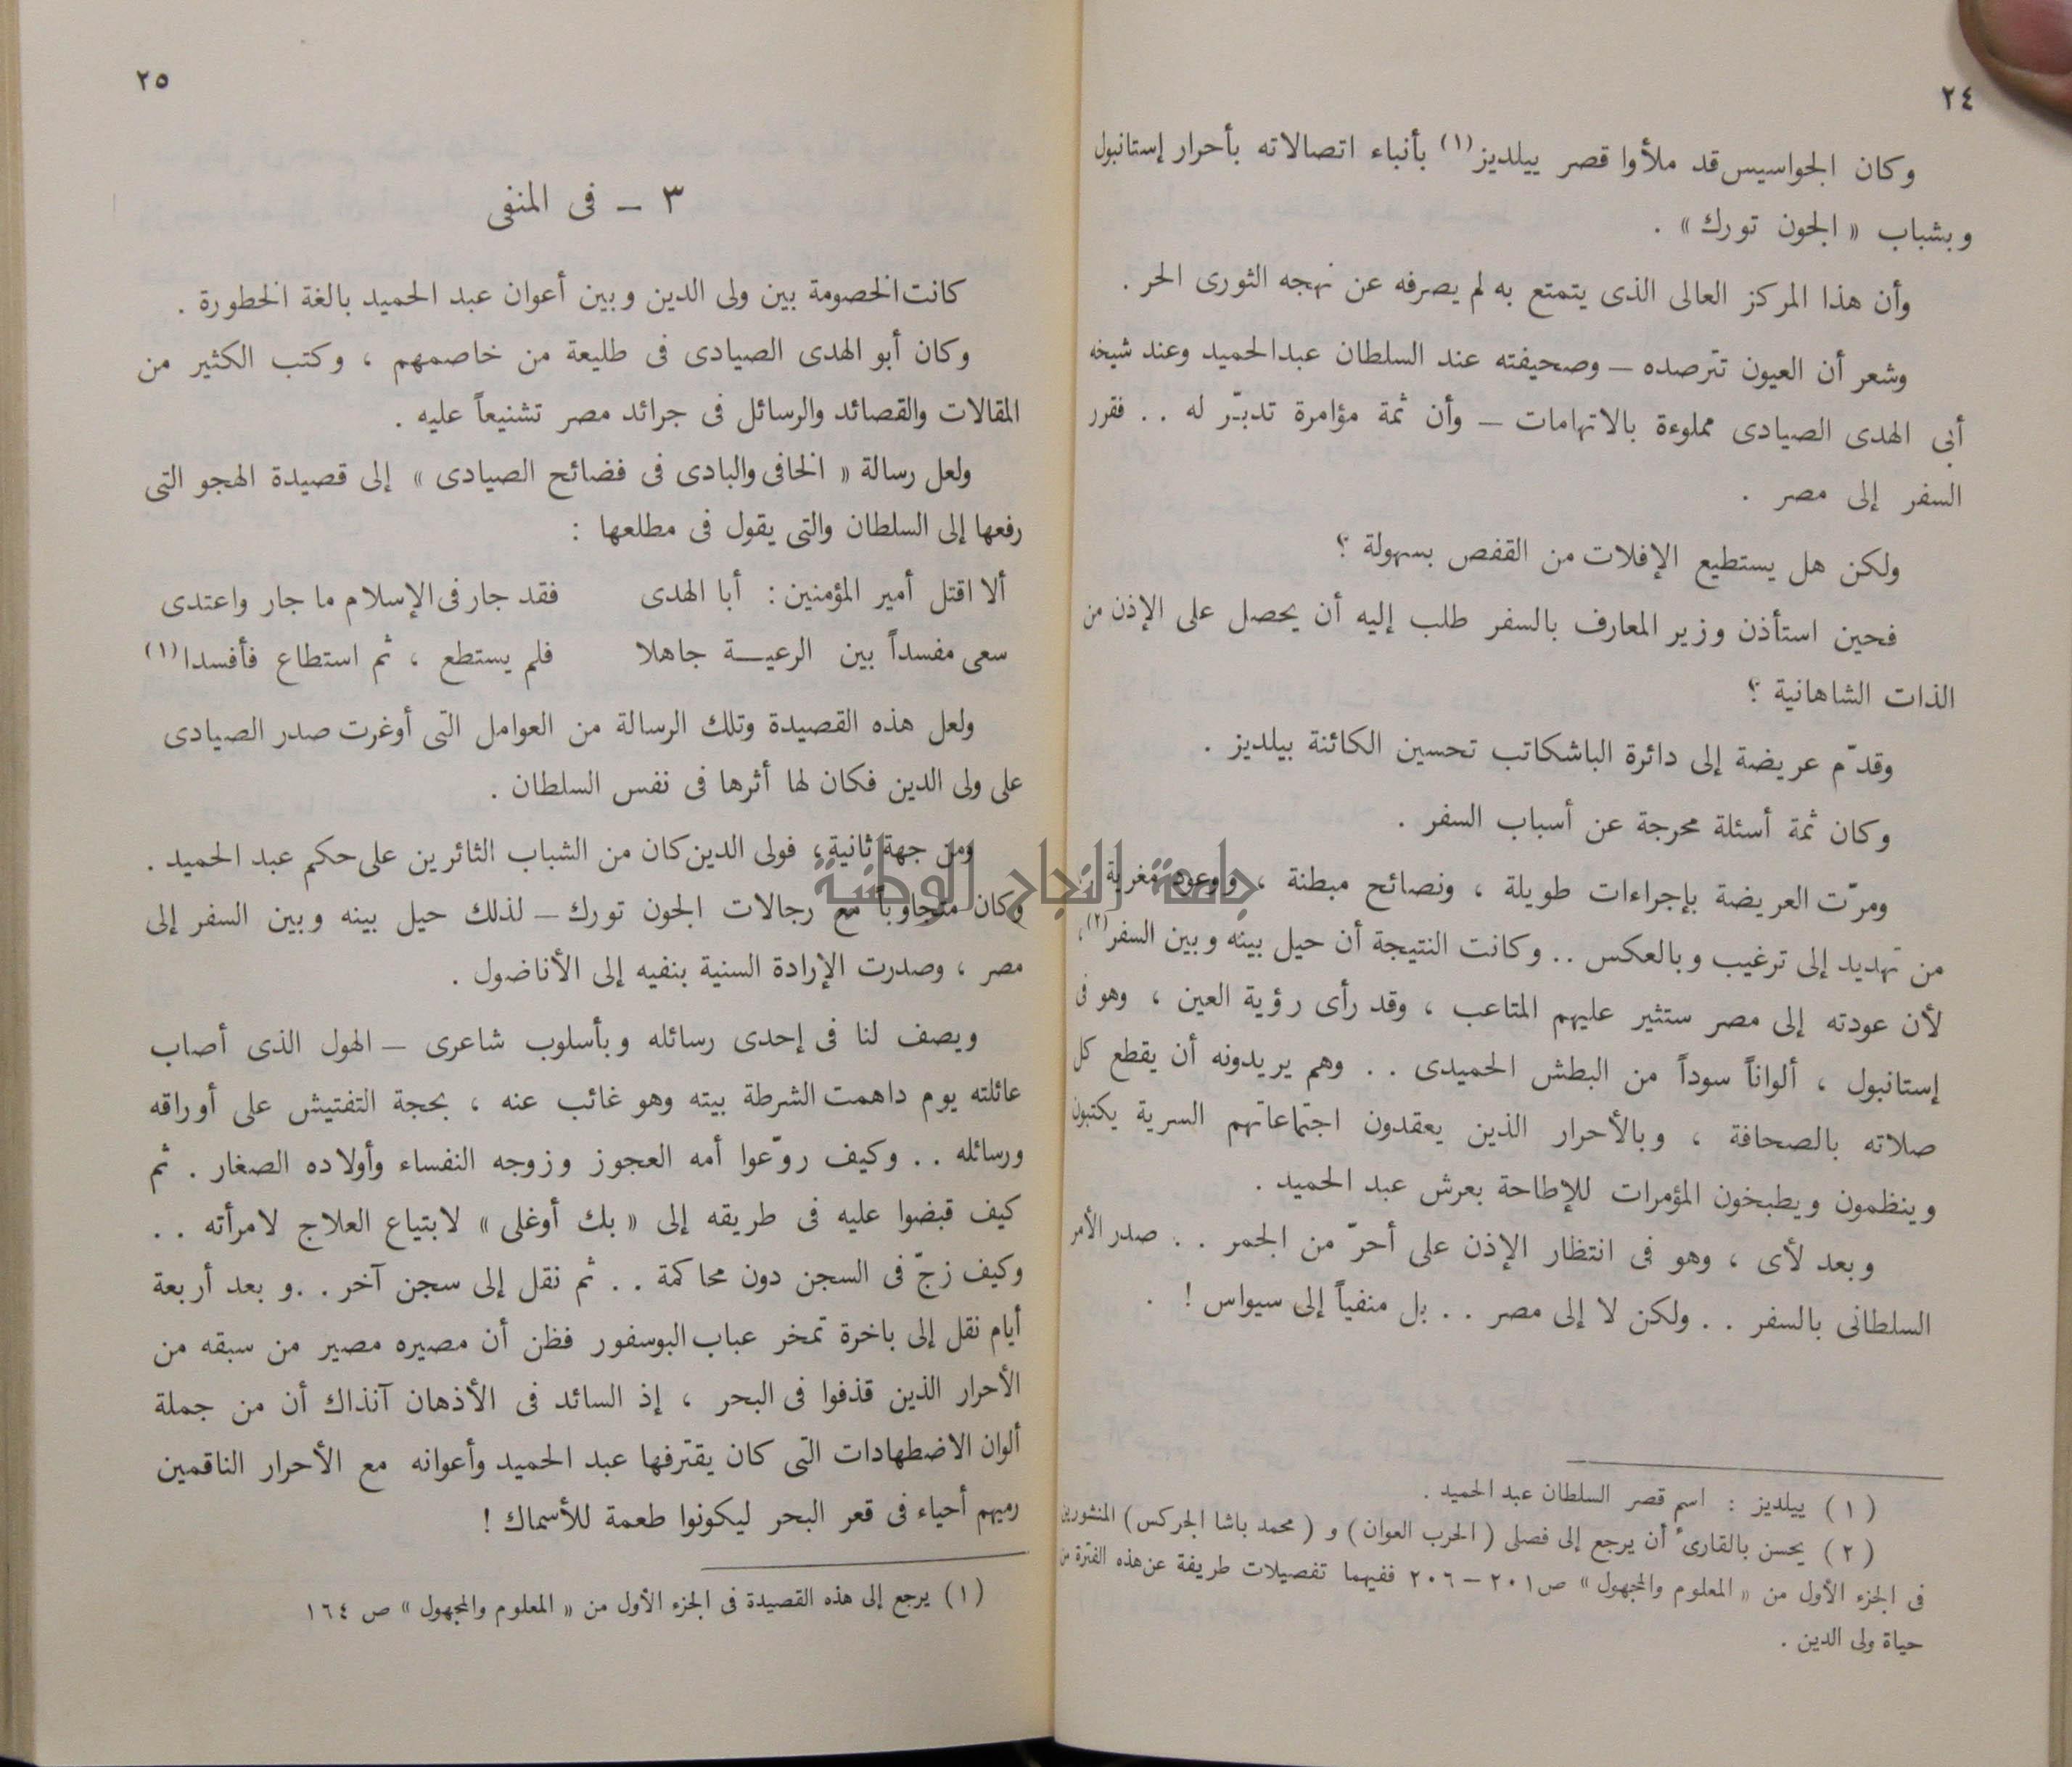 ٢٤
وكان الجواسيس قد ملأوا قصر ييلديز(١) بأنباء اتصالاته بأحرار إستانبول
وبشباب « الجون تورك » .
وأن هذا المركز العالى الذى يتمتع به لم يصرفه عن نهجه الثورى الحر .
وشعر أن العيون تترصده – وصحيفته عند السلطان عبدالحميد وعند شيخه
أبى الهدى الصيادى مملوءة بالاتهامات – وأن ثمة مؤامرة تدبّر له . . فقرر
السفر إلى مصر .
ولكن هل يستطيع الإفلات من القفص بسهولة ؟
فحين استأذن وزير المعارف بالسفر طلب إليه أن يحصل على الإذن من
الذات الشاهانية ؟
وقدّم عريضة إلى دائرة الباشكاتب تحسين الكائنة بيلديز .
وكان ثمة أسئلة محرجة عن أسباب السفر .
ومرّت العريضة بإجراءات طويلة ، ونصائح مبطنة ، ووعود مغرية ،
من تهديد إلى ترغيب وبالعكس .. وكانت النتيجة أن حيل بينه وبين السفر(٢)،
لأن عودته إلى مصر ستثير عليهم المتاعب ، وقد رأى رؤية العين ، وهو فى
إستانبول ، ألواناً سوداً من البطش الحميدى . . وهم يريدونه أن يقطع كل
صلاته بالصحافة ، وبالأحرار الذين يعقدون اجتماعاتهم السرية يكتبون
وينظمون ويطبخون المؤمرات للإطاحة بعرش عبد الحميد .
وبعد لأى ، وهو فى انتظار الإذن على أحرّ من الجمر . . صدر الأمر
السلطانى بالسفر . . ولكن لا إلى مصر . . بل منفياً إلى سيواس ! .
( ١ ) ييلديز : اسم قصر السلطان عبد الحميد .
( ٢ ) يحسن بالقارئ أن يرجع إلى فصلى ( الحرب العوان ) و ( محمد باشا الجركس ) المنشورين
فى الجزء الأول من « المعلوم والمجهول » ص ٢٠١ – ٢٠٦ ففيهما تفصيلات طريفة عن هذه الفترة من
حياة ولى الدين .
٢٥
٣ – فى المنفى
كانت الخصومة بين ولى الدين وبين أعوان عبد الحميد بالغة الخطورة .
وكان أبو الهدى الصيادى فى طليعة من خاصمهم ، وكتب الكثير من
المقالات والقصائد والرسائل فى جرائد مصر تشنيعاً عليه .
ولعل رسالة « الخافى والبادى فى فضائح الصيادى » إلى قصيدة الهجو التى
رفعها إلى السلطان والتى يقول فى مطلعها :
ألا اقتل أمير المؤمنين : أبا الهدى فقد جار فى الإسلام ما جار واعتدى
سعى مفسداً بين الرعيــة جاهلا فلم يستطع ، ثم استطاع فأفسدا(١)
ولعل هذه القصيدة وتلك الرسالة من العوامل التى أوغرت صدر الصيادى
على ولى الدين فكان لها أثرها فى نفس السلطان .
ومن جهة ثانية ، فولى الدين كان من الشباب الثائرين على حكم عبد الحميد .
وكان متجاوباً مع رجالات الجون تورك – لذلك حيل بينه وبين السفر إلى
مصر ، وصدرت الإرادة السنية بنفيه إلى الأناضول .
ويصف لنا فى إحدى رسائله وبأسلوب شاعرى – الهول الذى أصاب
عائلته يوم داهمت الشرطة بيته وهو غائب عنه ، بحجة التفتيش على أوراقه
ورسائله . . وكيف روّعوا أمه العجوز وزوجه النفساء وأولاده الصغار . ثم
كيف قبضوا عليه فى طريقه إلى « بك أوغلى » لابتياع العلاج لامرأته . .
وكيف زجّ فى السجن دون محاكمة . . ثم نقل إلى سجن آخر . .و بعد أربعة
أيام نقل إلى باخرة تمخر عباب البوسفور فظن أن مصيره مصير من سبقه من
الأحرار الذين قذفوا فى البحر ، إذ السائد فى الأذهان آنذاك أن من جملة
ألوان الاضطهادات التى كان يقترفها عبد الحميد وأعوانه مع الأحرار الناقمين
رميهم أحياء فى قعر البحر ليكونوا طعمة للأسماك !
( ١ ) يرجع إلى هذه القصيدة فى الجزء الأول من « المعلوم والمجهول » ص ١٦٤
جامعة النجاح الوطنية